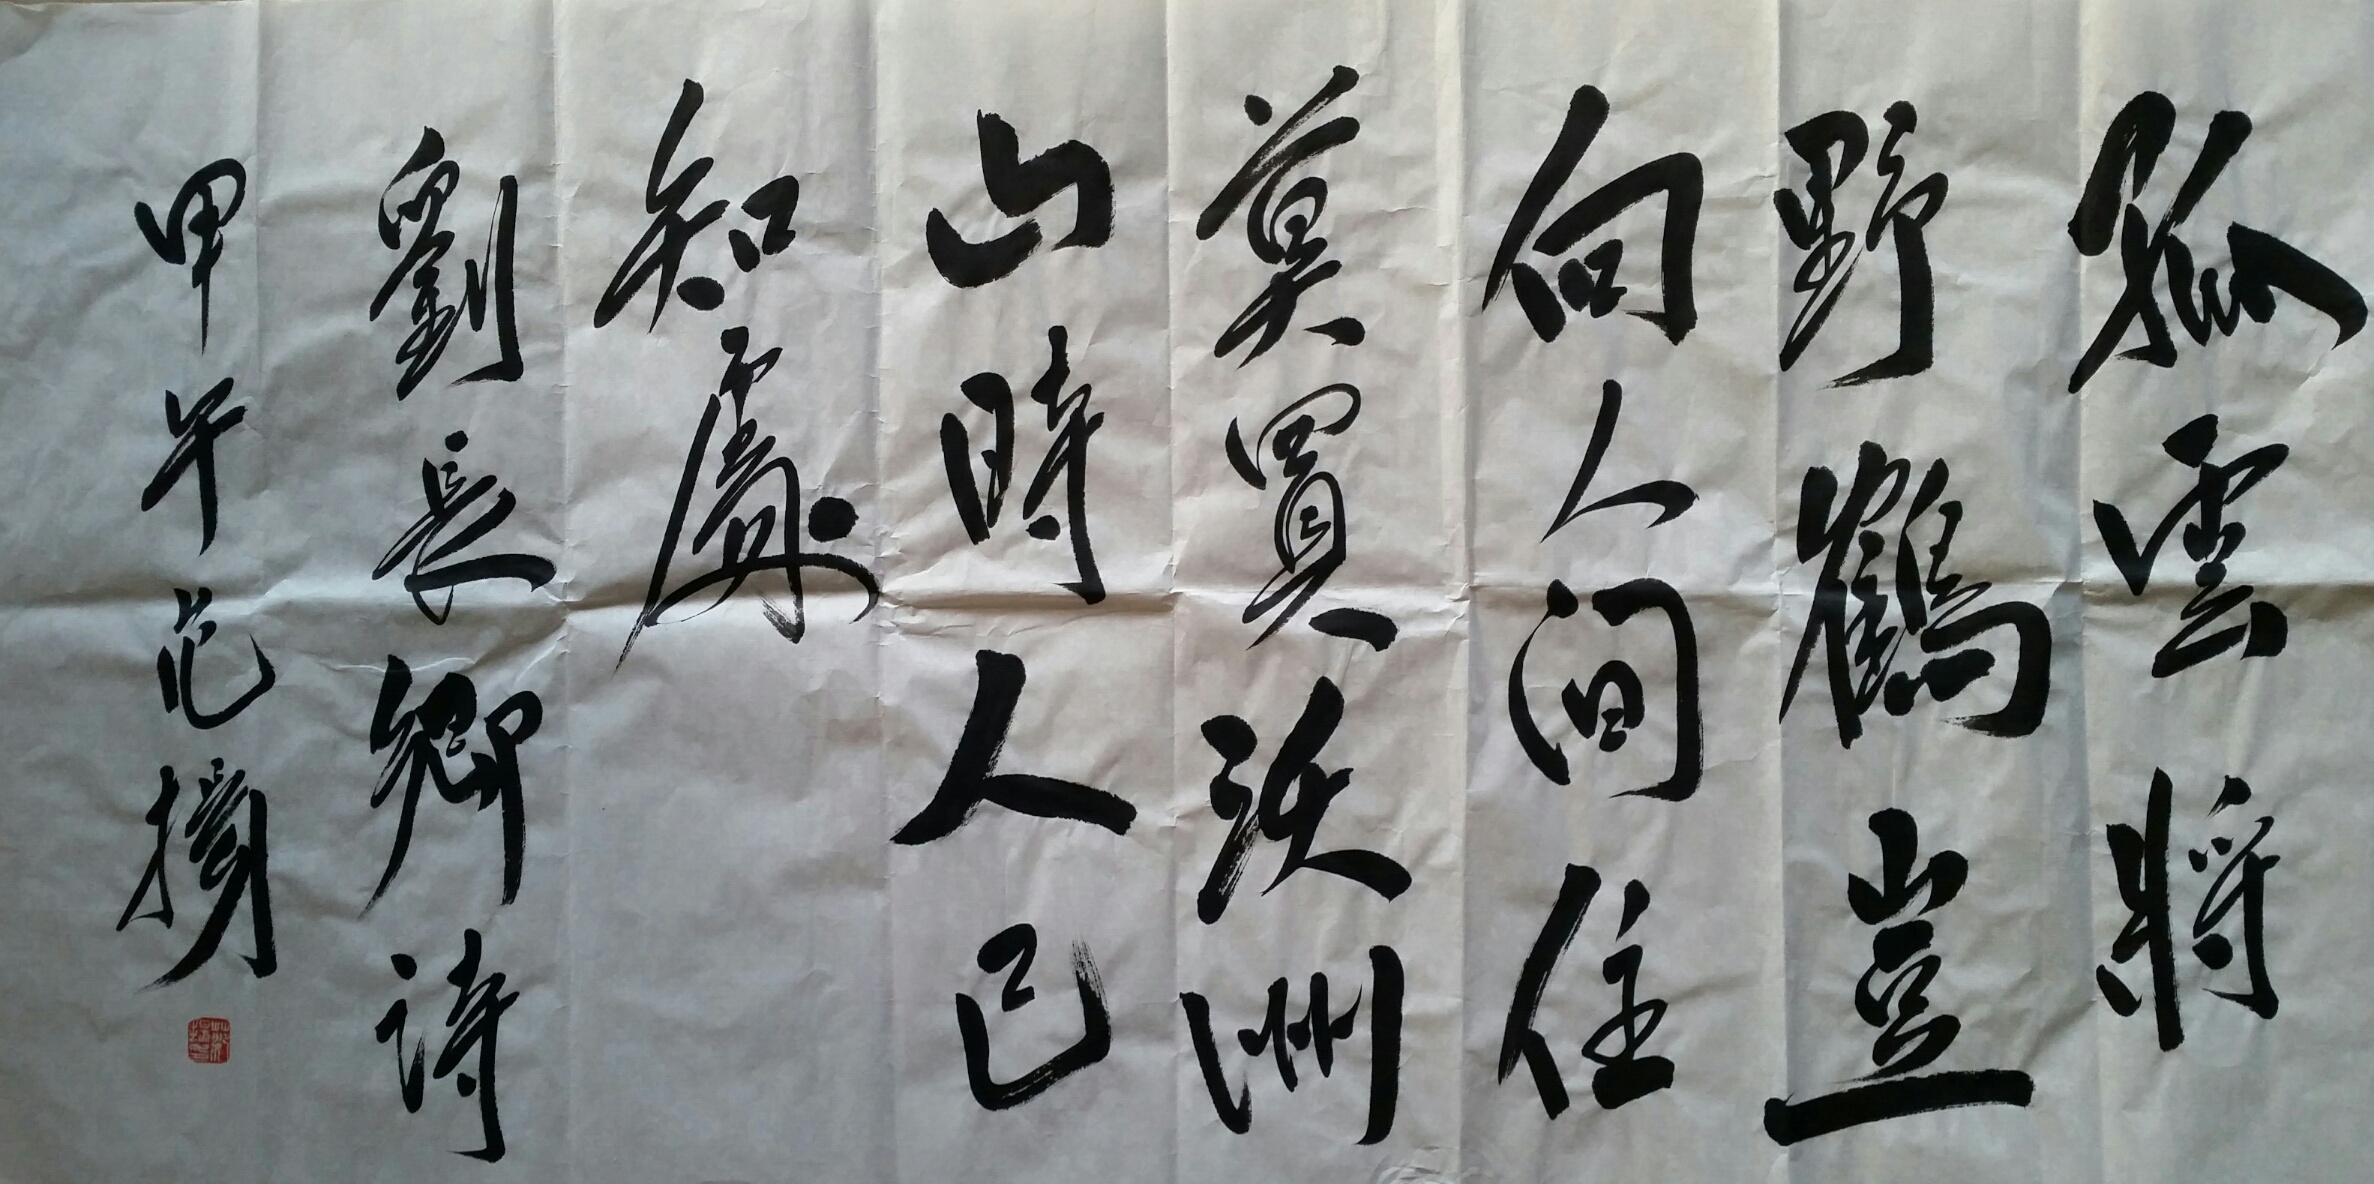 孤雲將
野鶴豈
向人間住
莫買沃洲
山時人已
知處
劉長卿詩
甲午